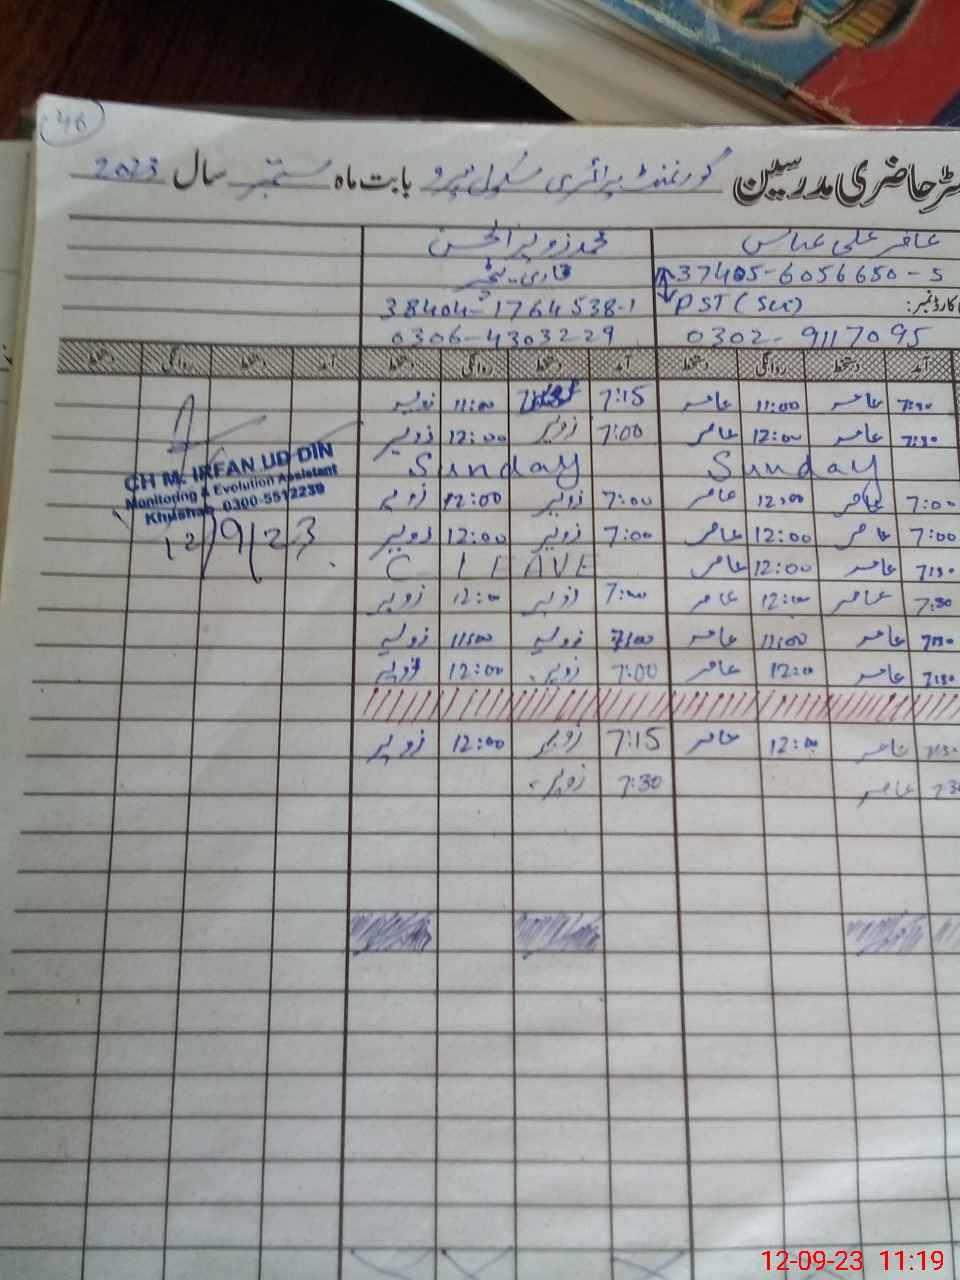 46
رجسٹر حاضری مدرسین گورنمنٹ پرائمری سکول بابت ماہ ستمبر سال 2023
عامر علی عباس محمد زوہیر الحسن
37405-6056650-5 قاری ٹیچر
PST (Sci) 38404-1764538-1
0302-9117095 0306-4303229
آمد دستخط روانگی دستخط آمد دستخط روانگی دستخط آمد دستخط روانگی دستخط
7:30 عامر 11:00 عامر 7:15 11:00 زوہیر
7:30 عامر 12:00 عامر 7:00 زوہیر 12:00 زوہیر
Sunday Sunday
7:00 عامر 12:00 عامر 7:00 زوہیر 12:00 زوہیر
7:00 عامر 12:00 عامر 7:00 زوہیر 12:00 زوہیر
7:30 عامر 12:00 عامر C- LEAVE
7:30 عامر 12:00 عامر 7:00 زوہیر 12:00 زوہیر
7:30 عامر 11:00 عامر 7:00 زوہیر 11:00 زوہیر
7:30 عامر 12:00 عامر 7:00 زوہیر 12:00 زوہیر
7:30 عامر 12:00 عامر 7:15 زوہیر 12:00 زوہیر
7:30 عامر 7:30 زوہیر
CH M. IRFAN UD DIN
Monitoring & Evolution Assistant
Khushab 0300-5512239
12/9/23
12-09-23 11:19